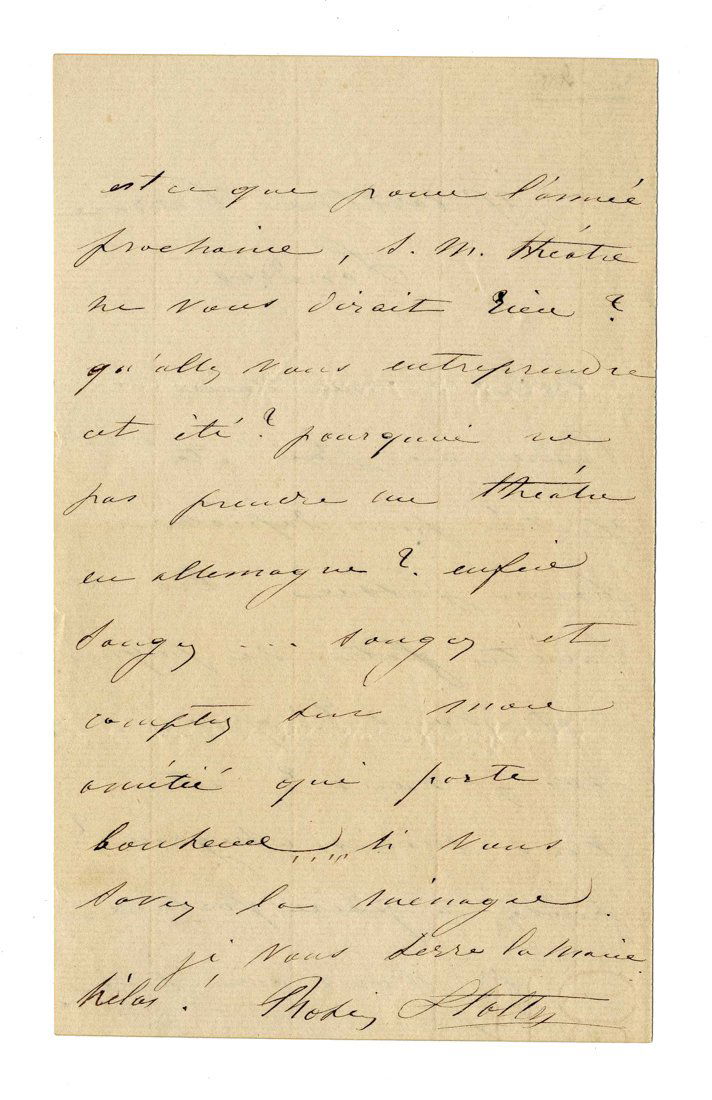 est ce que pour l'année
prochaine, S. M. théâtre
ne vous dirait rien ?
qu'allez vous entreprendre
cet été ? pourquoi ne
pas prendre un théâtre
en allemagne ?. enfin
songez ... songez et
comptez sur mon
amitié qui porte
bonheur ..... si vous
savez la ménager.
je vous serre la main.
hélas !